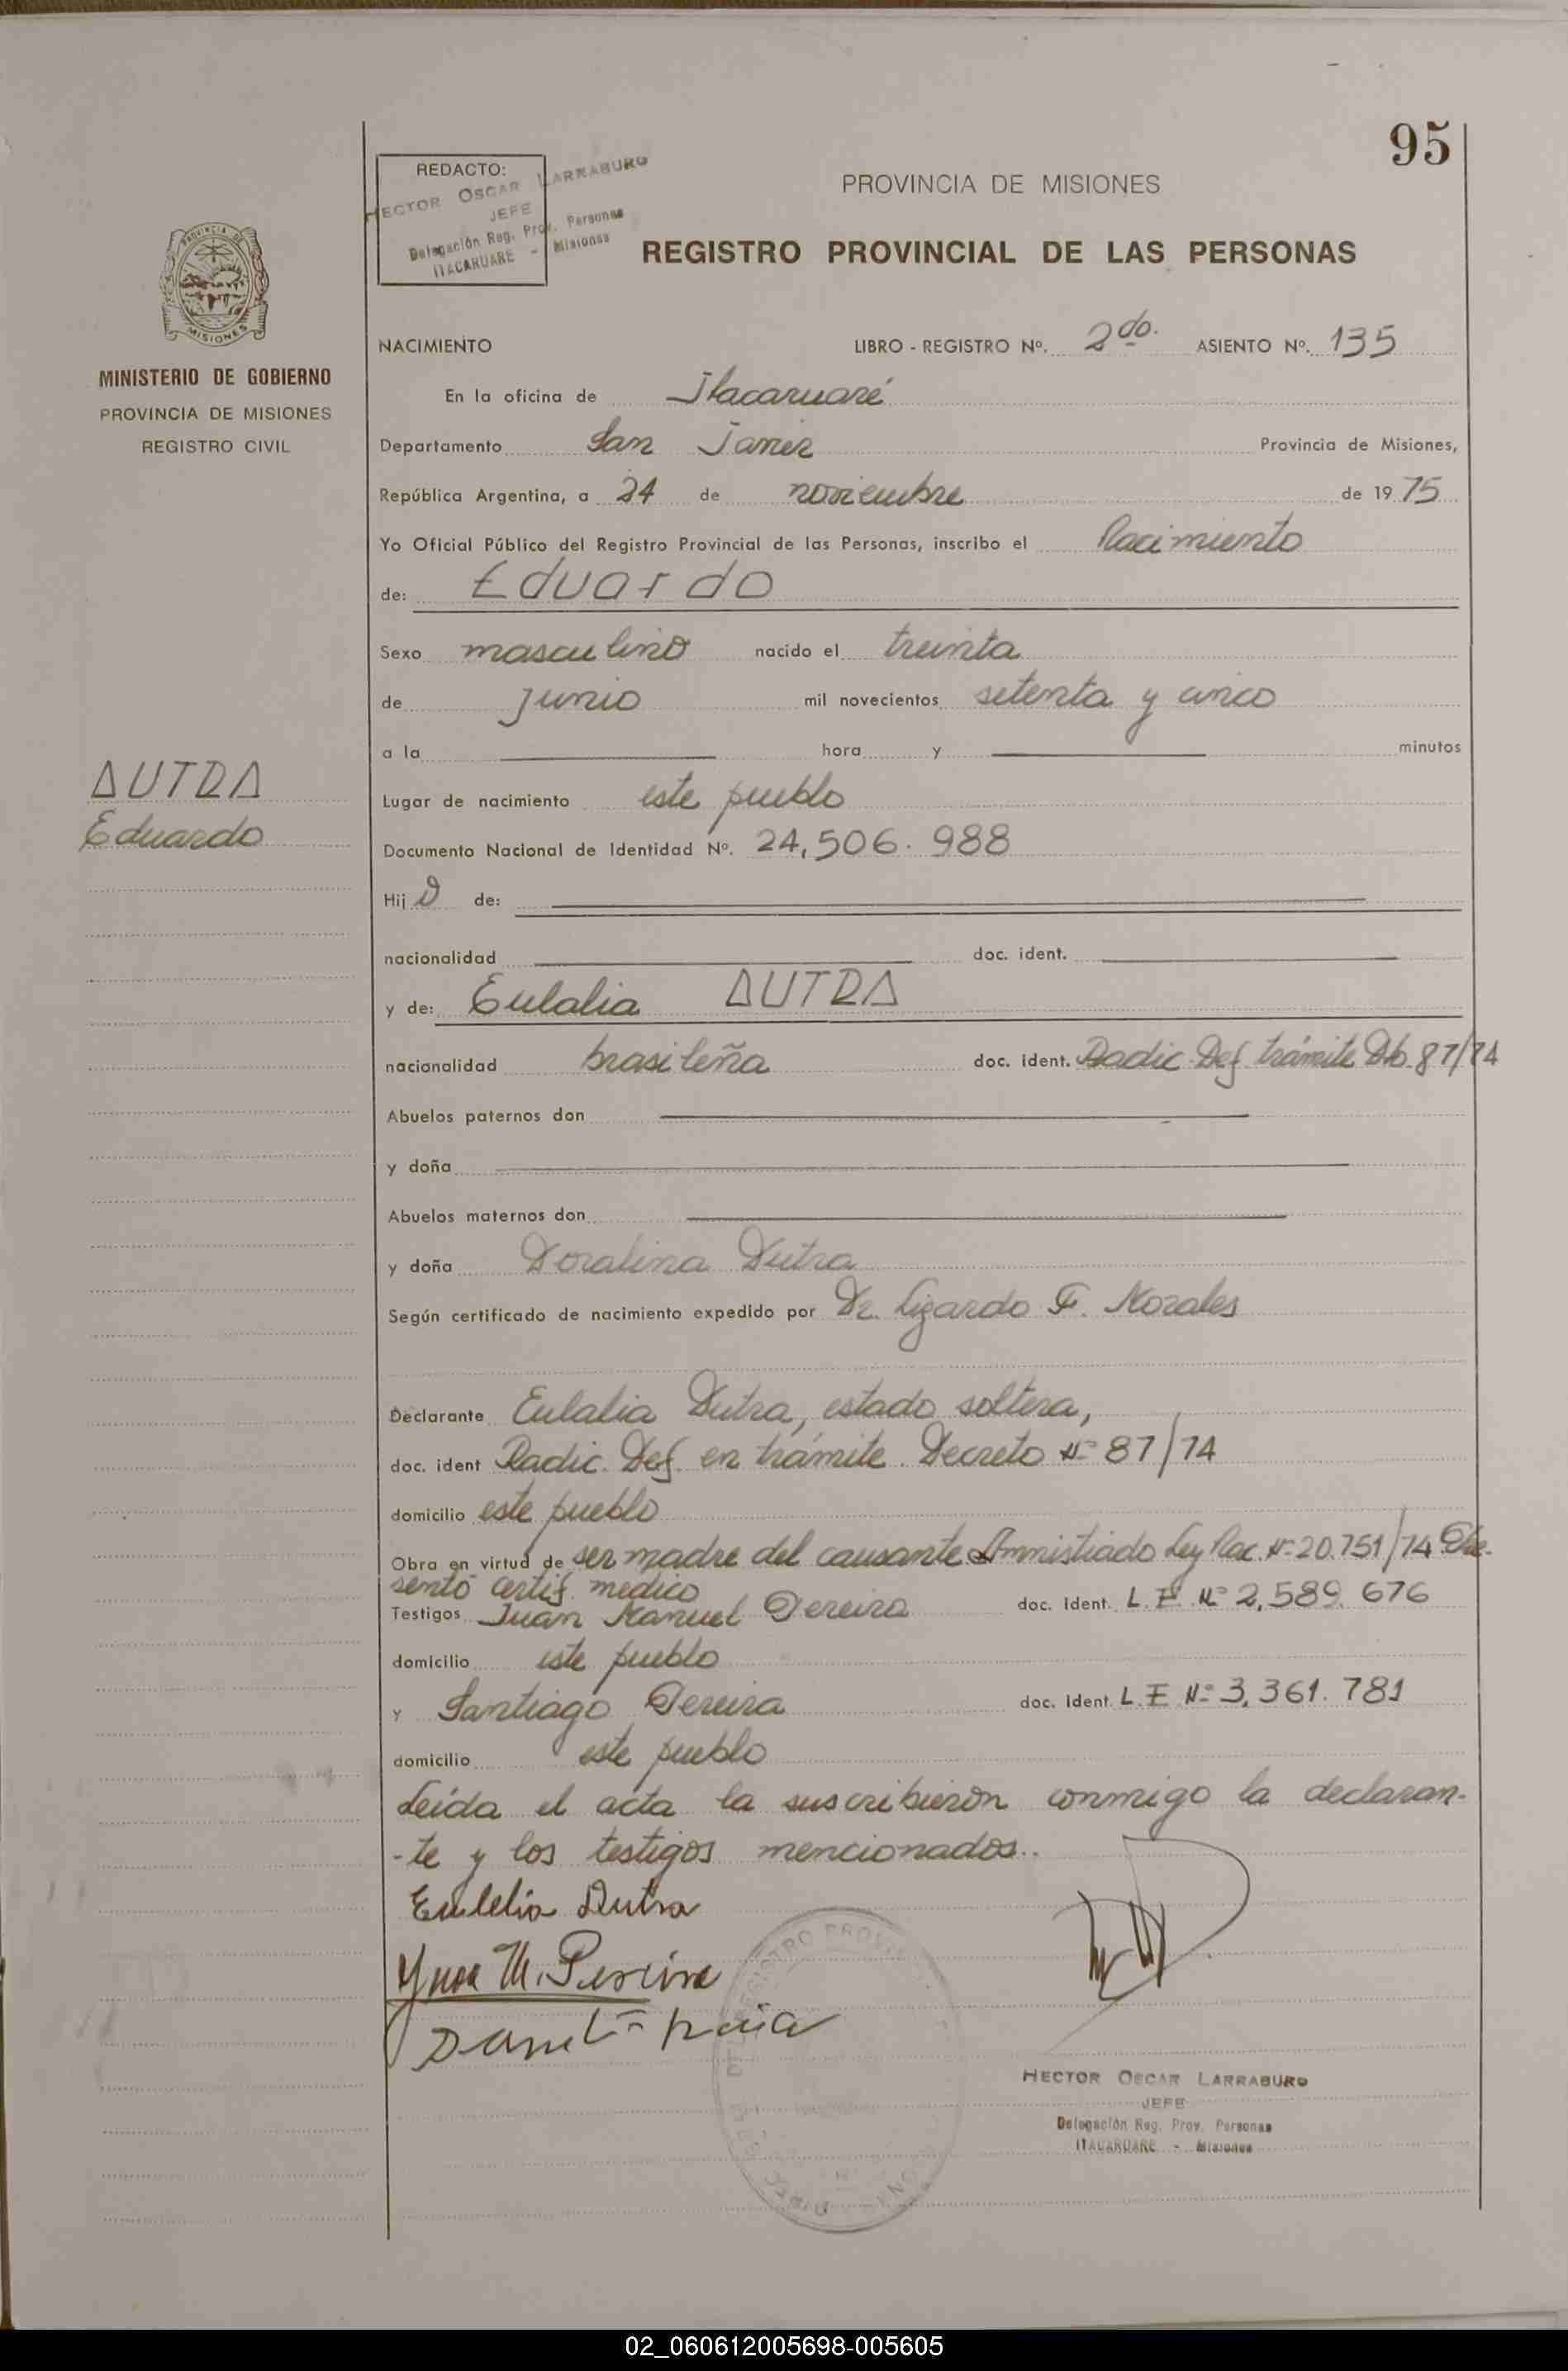 95
REDACTO:
HECTOR OSCAR LARRABURO
JEFE
Delegación Reg. Prov. Personas
ITACARUARE - Misiones
PROVINCIA DE MISIONES
REGISTRO PROVINCIAL DE LAS PERSONAS
PROVINCIA DE
MISIONES
MINISTERIO DE GOBIERNO
PROVINCIA DE MISIONES
REGISTRO CIVIL
NACIMIENTO LIBRO - REGISTRO Nº. 2do. ASIENTO Nº. 135
En la oficina de Itacaruaré
Departamento San Javier Provincia de Misiones,
República Argentina, a 24 de noviembre de 1975
Yo Oficial Público del Registro Provincial de las Personas, inscribo el Nacimiento
de: Eduardo
Sexo masculino nacido el treinta
de junio mil novecientos setenta y cinco
a la hora y minutos
DUTRA
Eduardo
Lugar de nacimiento este pueblo
Documento Nacional de Identidad Nº. 24,506.988
Hijo de:
nacionalidad doc. ident.
y de: Eulalia DUTRA
nacionalidad brasileña doc. ident. Radic. Def. trámite Dto. 87/74
Abuelos paternos don
y doña
Abuelos maternos don
y doña Doralina Dutra
Según certificado de nacimiento expedido por Dr. Ligardo F. Morales
Declarante Eulalia Dutra, estado soltera,
doc. ident Radic. Def. en trámite. Decreto Nº 87/74
domicilio este pueblo
Obra en virtud de ser madre del causante Amnistiado Ley Nac. Nº 20.751/74 Pre-
sentó certif. medico
Testigos Juan Manuel Pereira doc. ident. L.E. Nº 2,589.676
domicilio este pueblo
y Santiago Pereira doc. ident. L.E Nº 3,361.781
domicilio este pueblo
Leída el acta la suscribieron conmigo la declaran-
-te y los testigos mencionados..
Eulelia Dutra
Juan M. Pereira
HECTOR OSCAR LARRABURO
JEFE
Delegación Reg. Prov. Personas
ITACARUARE - Misiones
02_060612005698-005605